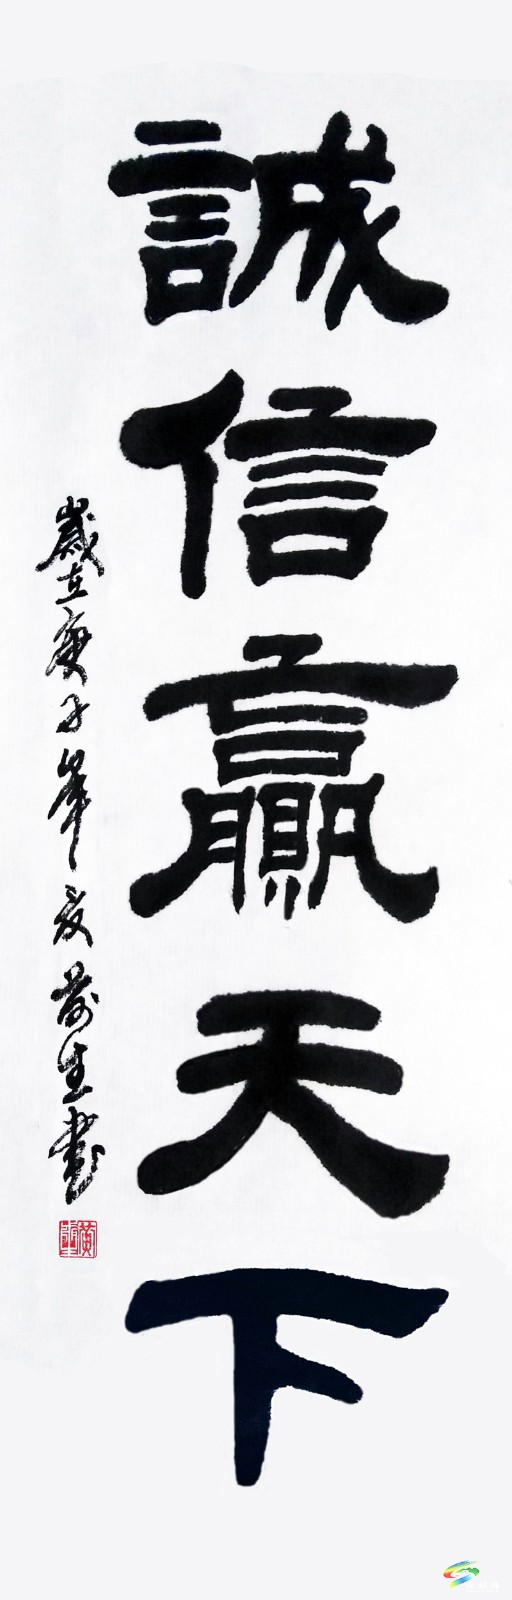 誠信贏天下
歲在庚子年夏前生書